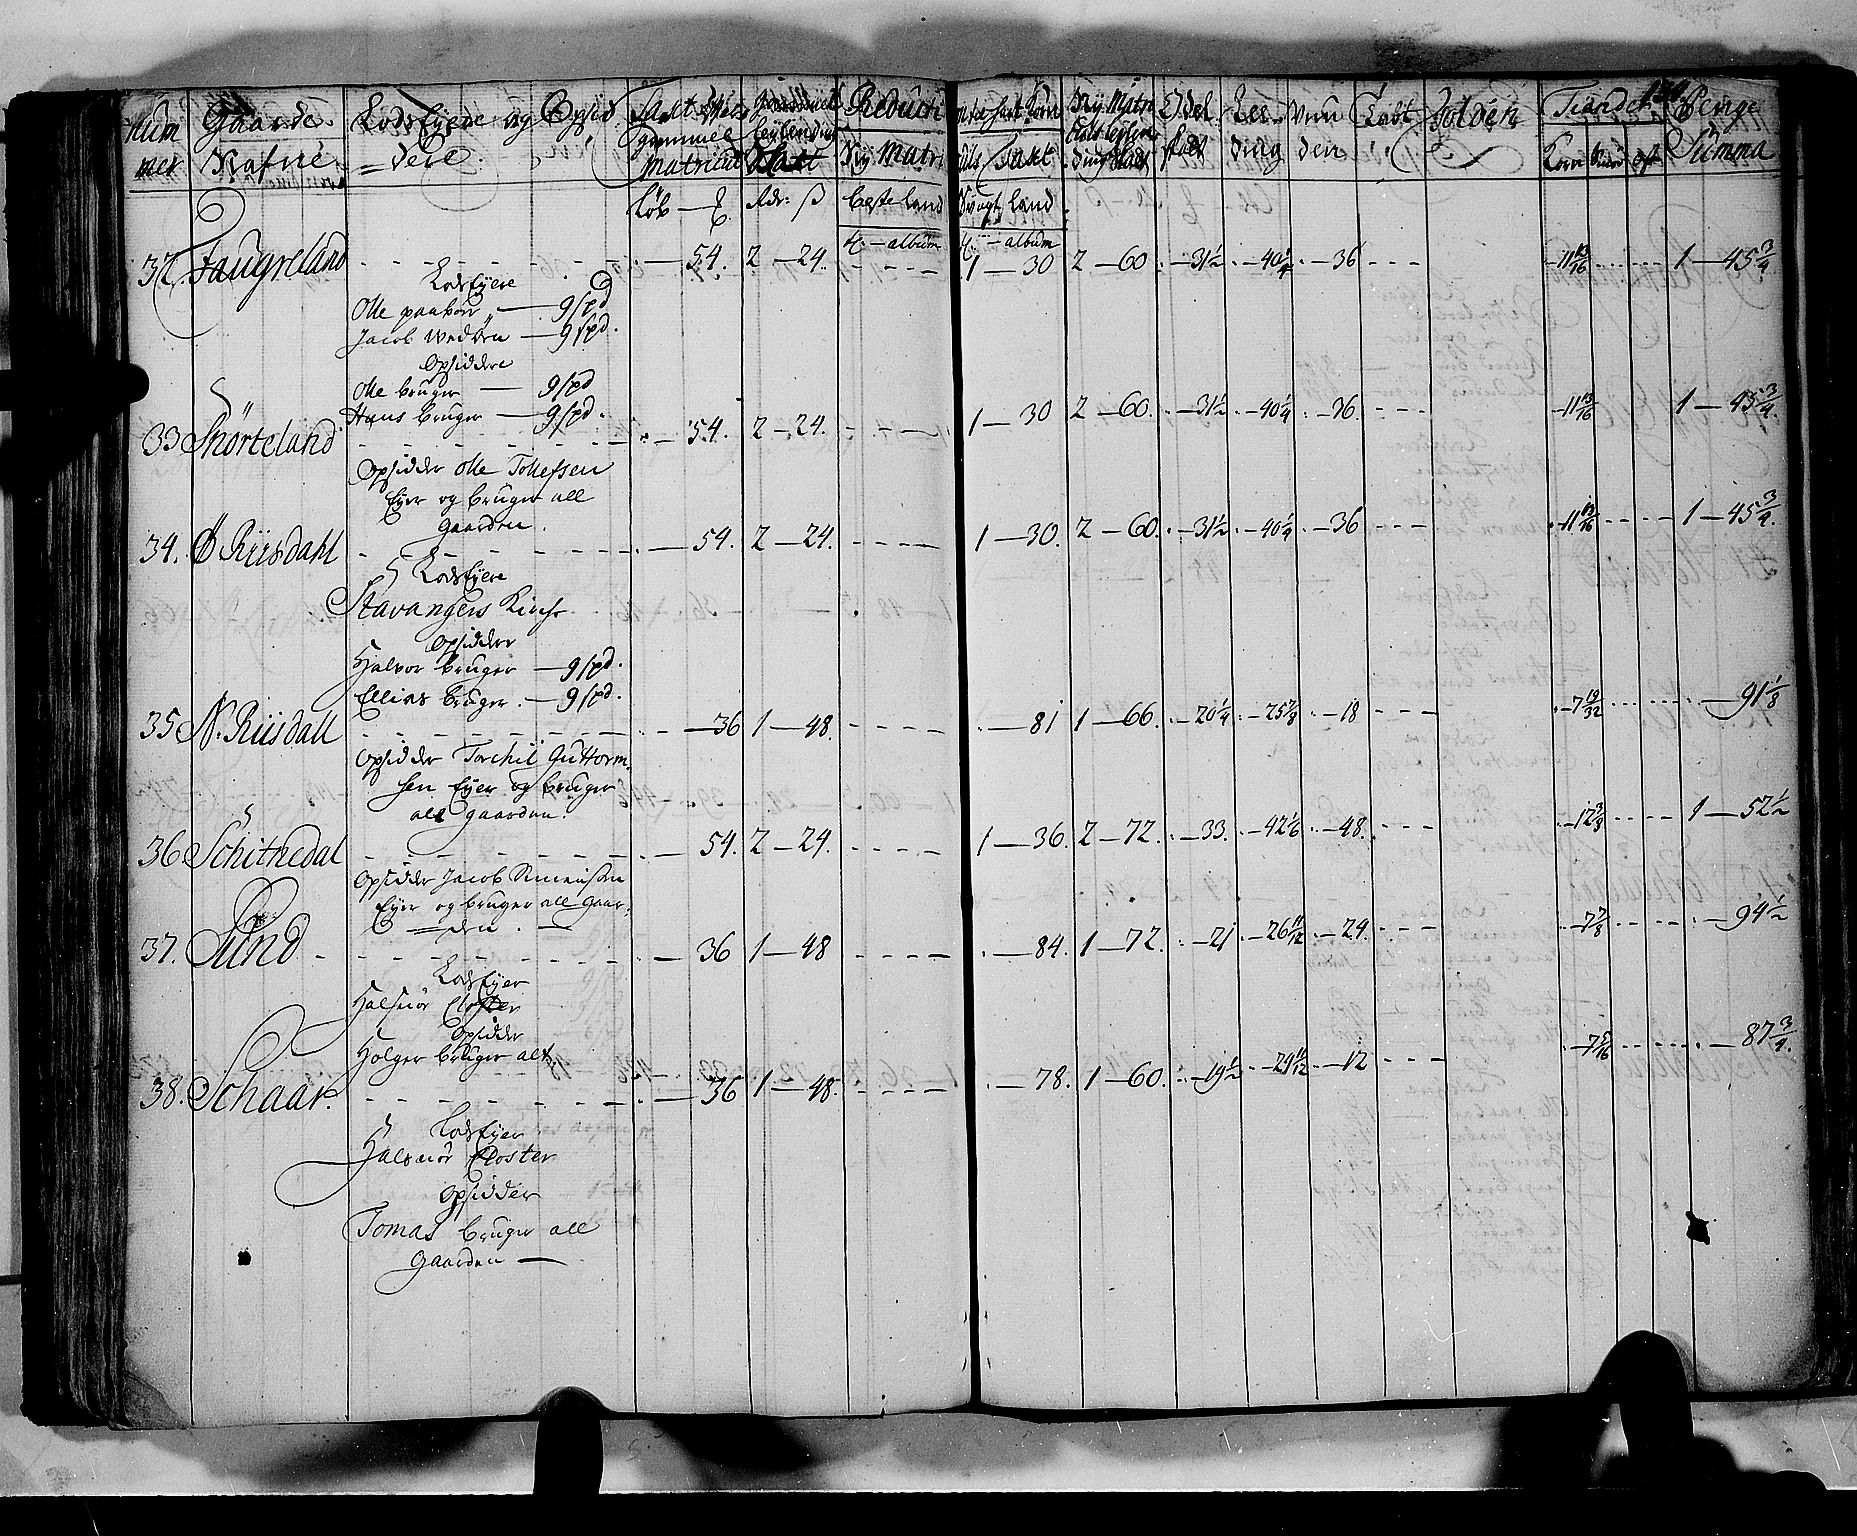 Num mer | Gaarde Nafne | Lodseyere og Opsiddere | gammel Matricul | Reducti Ny Matriculs Taxt | Tiander | Penge Summa
Løb | Rdr: ß | beste land | Svagt land
Korn
album | album
32. Faugreland 54. 2 - 24. 1 - 30 2 - 60 - 31½ - 40¼ - 36 - 11 13/16 1 - 45¾
Lodseyere
Olle paaboe 9 spd
Jacob 9 spd.
Opsiddere
Olle bruger 9 spd
Hans bruger 9 spd.
33 Snørteland 54. 2 - 24. 1 - 30 2 - 60. - 31½ - 40¼ - 36. - 11 13/16 1 - 45¾.
Opsidder Olle Tollefsen
Eyer og bruger all
gaarden.
34. Ø Riisdahl 54. 2 - 24. 1 - 30. 2 - 60. - 31½ - 40¼ - 36 - 11 13/16 1 - 45¾.
Lodseyere
Stavangers Kirche
Opsiddere
Halvor bruger 9 spd.
Ellias bruger. 9 spd.
35 N. Riisdall 36 1 - 48. 81 1 - 66. - 20¼ - 25⅞ - 18 - 7 19/32 - 91⅛
Opsidder Torchil Guttorm
sen Eyer og bruger
all gaarden.
36 Schithedal 54. 2 - 24. 1 - 36. 2 - 72. - 33. - 42⅙ - 48. - 12⅜ 1 - 52½
Opsidder Jacob Simensen
Eyer og bruger all gaar=
=den.
37. Sund 36 1 - 48 84. 1 - 72. - 21 - 26 11/12 - 24. - 7⅞ - 94½
Lodseyer
Halsnör Closter
Opsidder
Holger bruger alt
38. Schaar. 36 1 - 48. 78. 1 - 60. - 19½ - 24 11/12 - 12 - 7 5/16 - 87¾.
Lodseyer
Halsnör Closter
Opsidder
Tomas bruger all
gaarden